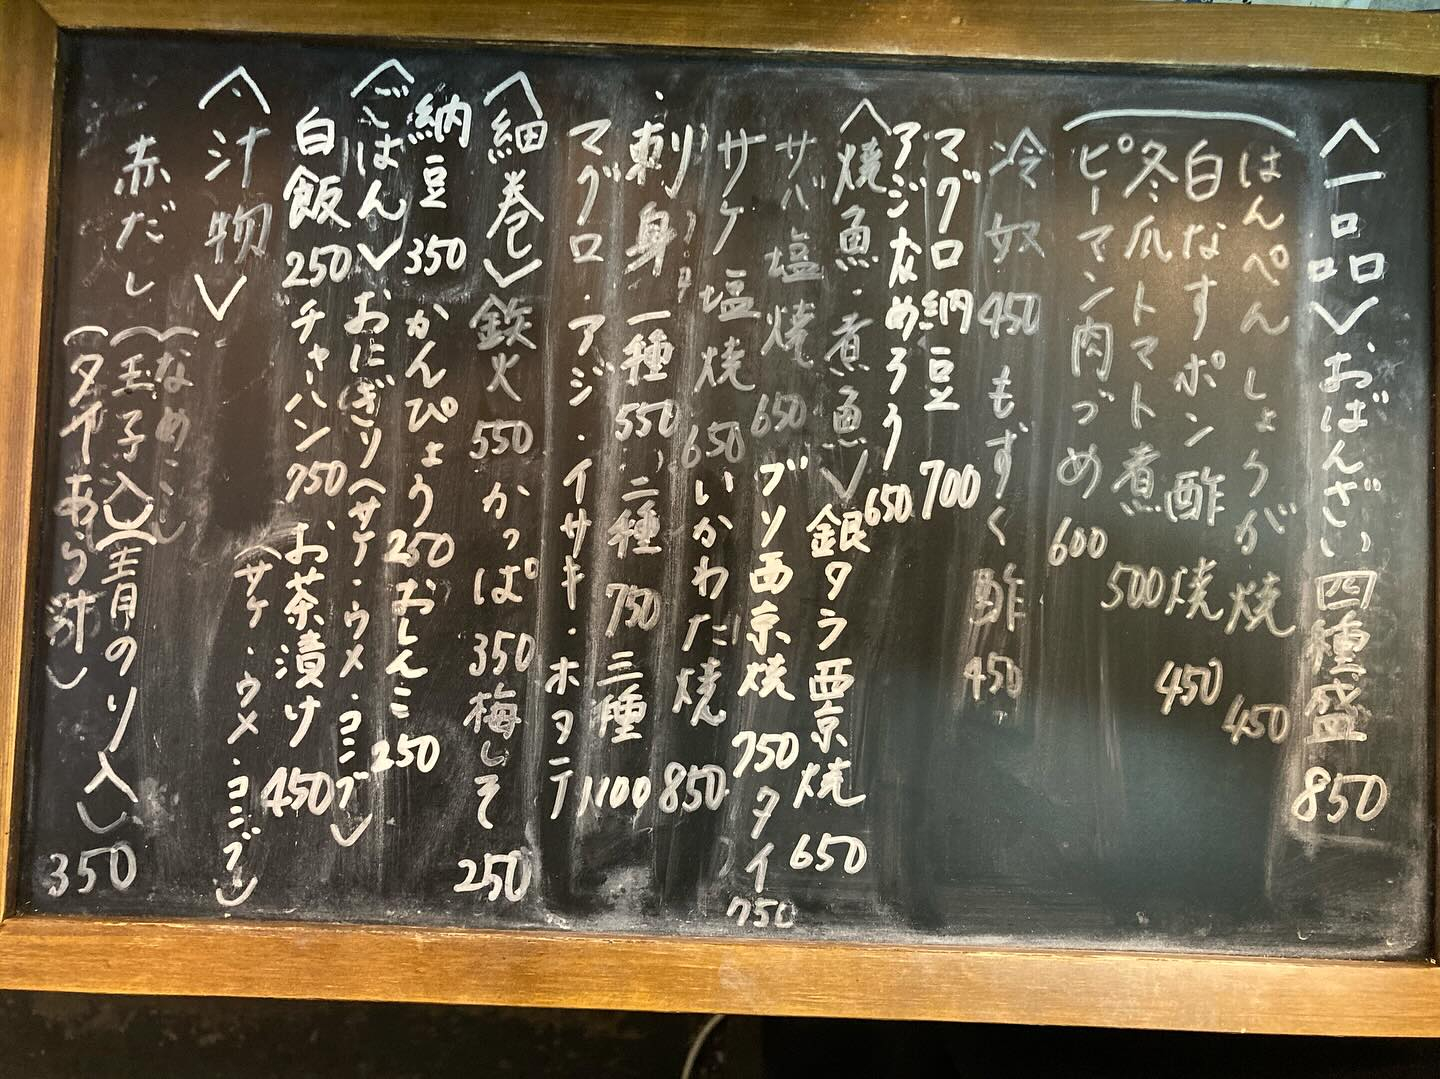 〈一品〉おばんざい四種盛 850
はんぺんしょうが焼 450
白なすポン酢焼 450
冬爪トマト煮 500
ピーマン肉づめ 600
冷奴 450 もずく酢 450
マグロ納豆 700
アジなめろう 650
〈焼魚・煮魚〉銀タラ西京焼 650
サバ塩焼 650 ブリ西京焼 750 タイ 750
サケ塩焼 650 いかわた焼 850
刺身 一種 550 二種 750 三種 1100
マグロ・アジ・イサキ・ホタテ
〈細巻〉鉄火 550 かっぱ 350 梅しそ 250
納豆 350 かんぴょう 250 おしんこ 250
〈ごはん〉おにぎり(サケ・ウメ・コンブ)
白飯 250 チャーハン 750 お茶漬け 450
(サケ・ウメ・コンブ)
〈汁物〉
赤だし
(なめこ
(玉子入)(青のり入)
(タイあら汁) 350